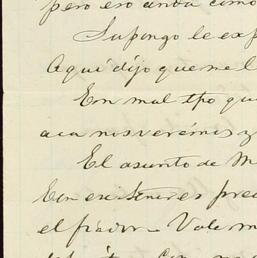 pero eso anda como
Supongo le exp
Aquí dijo que me l
En mal tpo qu
aca nos veremos y
El asunto de M
prec
el fiador. Vale m